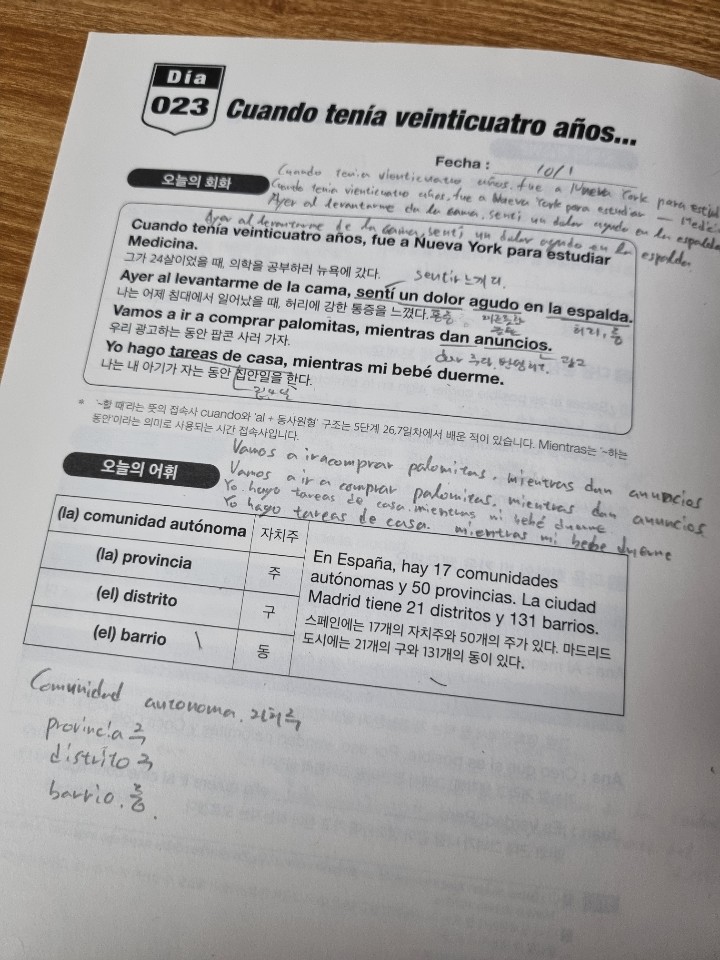 Día
023
Cuando tenía veinticuatro años...
Fecha : 10/1
오늘의 회화
Cuando tenia vienticuatro años, fue a Nueva York para estudi
Cuando tenia vienticuatro años, fue a Nueva York para estudiar — Medici
Ayer al levantarme de la cama, sentí un dolor agudo en la espalda
Ayer al levantarme de la cama, sentí un dolor agudo en la espalda.
Cuando tenía veinticuatro años, fue a Nueva York para estudiar
Medicina.
그가 24살이었을 때, 의학을 공부하러 뉴욕에 갔다.
sentir 느끼다.
Ayer al levantarme de la cama, sentí un dolor agudo en la espalda.
나는 어제 침대에서 일어났을 때, 허리에 강한 통증을 느꼈다.
허리, 등
Vamos a ir a comprar palomitas, mientras dan anuncios.
우리 광고하는 동안 팝콘 사러 가자.
dar 주다. 광고
Yo hago tareas de casa, mientras mi bebé duerme.
나는 내 아기가 자는 동안 집안일을 한다.
집안일
* '~할 때'라는 뜻의 접속사 cuando와 'al + 동사원형' 구조는 5단계 26,7일차에서 배운 적이 있습니다. Mientras는 '~하는
동안'이라는 의미로 사용되는 시간 접속사입니다.
오늘의 어휘
Vamos a ir a comprar palomitas, mientras dan anuncios
Vamos a ir a comprar palomitas, mientras dan anuncios
Yo hago tareas de casa, mientras mi bebé duerme
Yo hago tareas de casa. mientras mi bebe duerme
(la) comunidad autónoma 자치주
(la) provincia 주
(el) distrito 구
(el) barrio 동
En España, hay 17 comunidades
autónomas y 50 provincias. La ciudad
Madrid tiene 21 distritos y 131 barrios.
스페인에는 17개의 자치주와 50개의 주가 있다. 마드리드
도시에는 21개의 구와 131개의 동이 있다.
Comunidad autonoma. 자치주
provincia 주
distrito 구
barrio. 동.